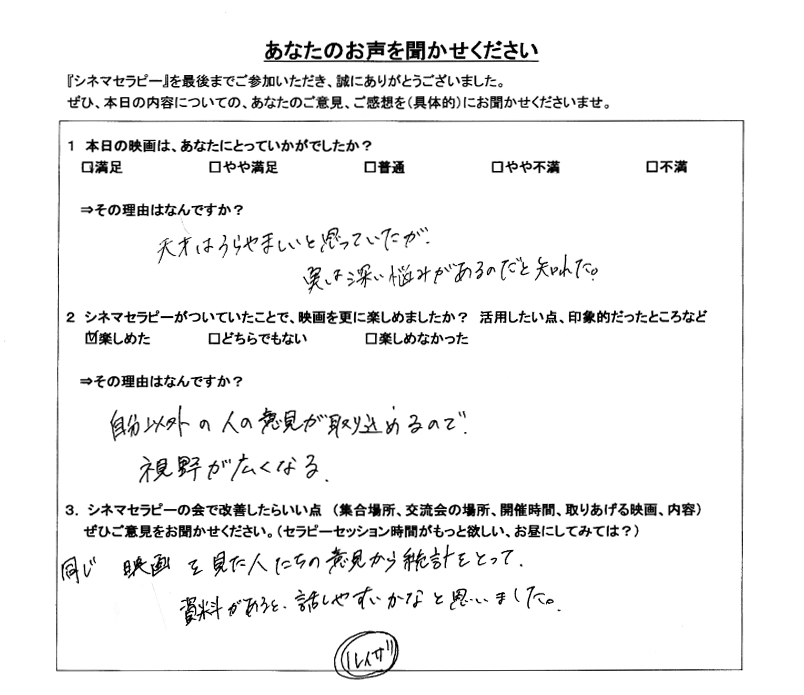 あなたのお声を聞かせください
『シネマセラピー』を最後までご参加いただき、誠にありがとうございました。
ぜひ、本日の内容についての、あなたのご意見、ご感想を(具体的)にお聞かせくださいませ。
1 本日の映画は、あなたにとっていかがでしたか？
□満足 □やや満足 □普通 □やや不満 □不満
⇒その理由はなんですか？
天才はうらやましいと思っていたが、
実は深い悩みがあるのだと知れた。
2 シネマセラピーがついていたことで、映画を更に楽しめましたか？ 活用したい点、印象的だったところなど
☑楽しめた □どちらでもない □楽しめなかった
⇒その理由はなんですか？
自分以外の人の意見が取り込めるので、
視野が広くなる。
3. シネマセラピーの会で改善したらいい点 (集合場所、交流会の場所、開催時間、取りあげる映画、内容)
ぜひご意見をお聞かせください。(セラピーセッション時間がもっと欲しい、お昼にしてみては？)
同じ 映画を見た人たちの意見から統計をとって、
資料があると、話しやすいかなと思いました。